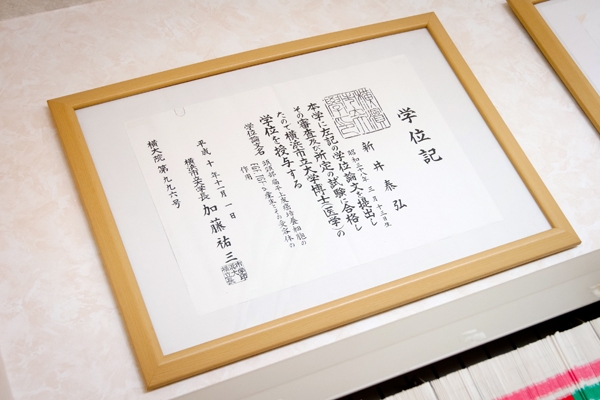 学位記
新井泰弘
昭和三十八年三月十三日生
本学に左記の学位論文を提出し
その審査及び所定の試験に合格し
たので横浜市立大学博士(医学)の
学位を授与する
学位論文名 頭頚部扁平上皮癌培養細胞の
産生とその受容体の
作用
平成十年十一月一日
横浜市立大学長 加藤祐三
横大院第九九六号